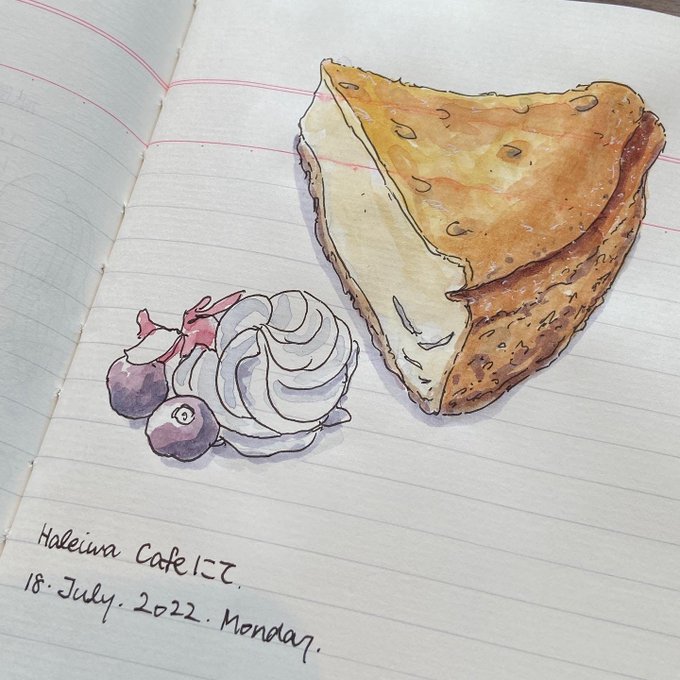 Haleiwa Cafe にて.
18. July. 2022. Monday.